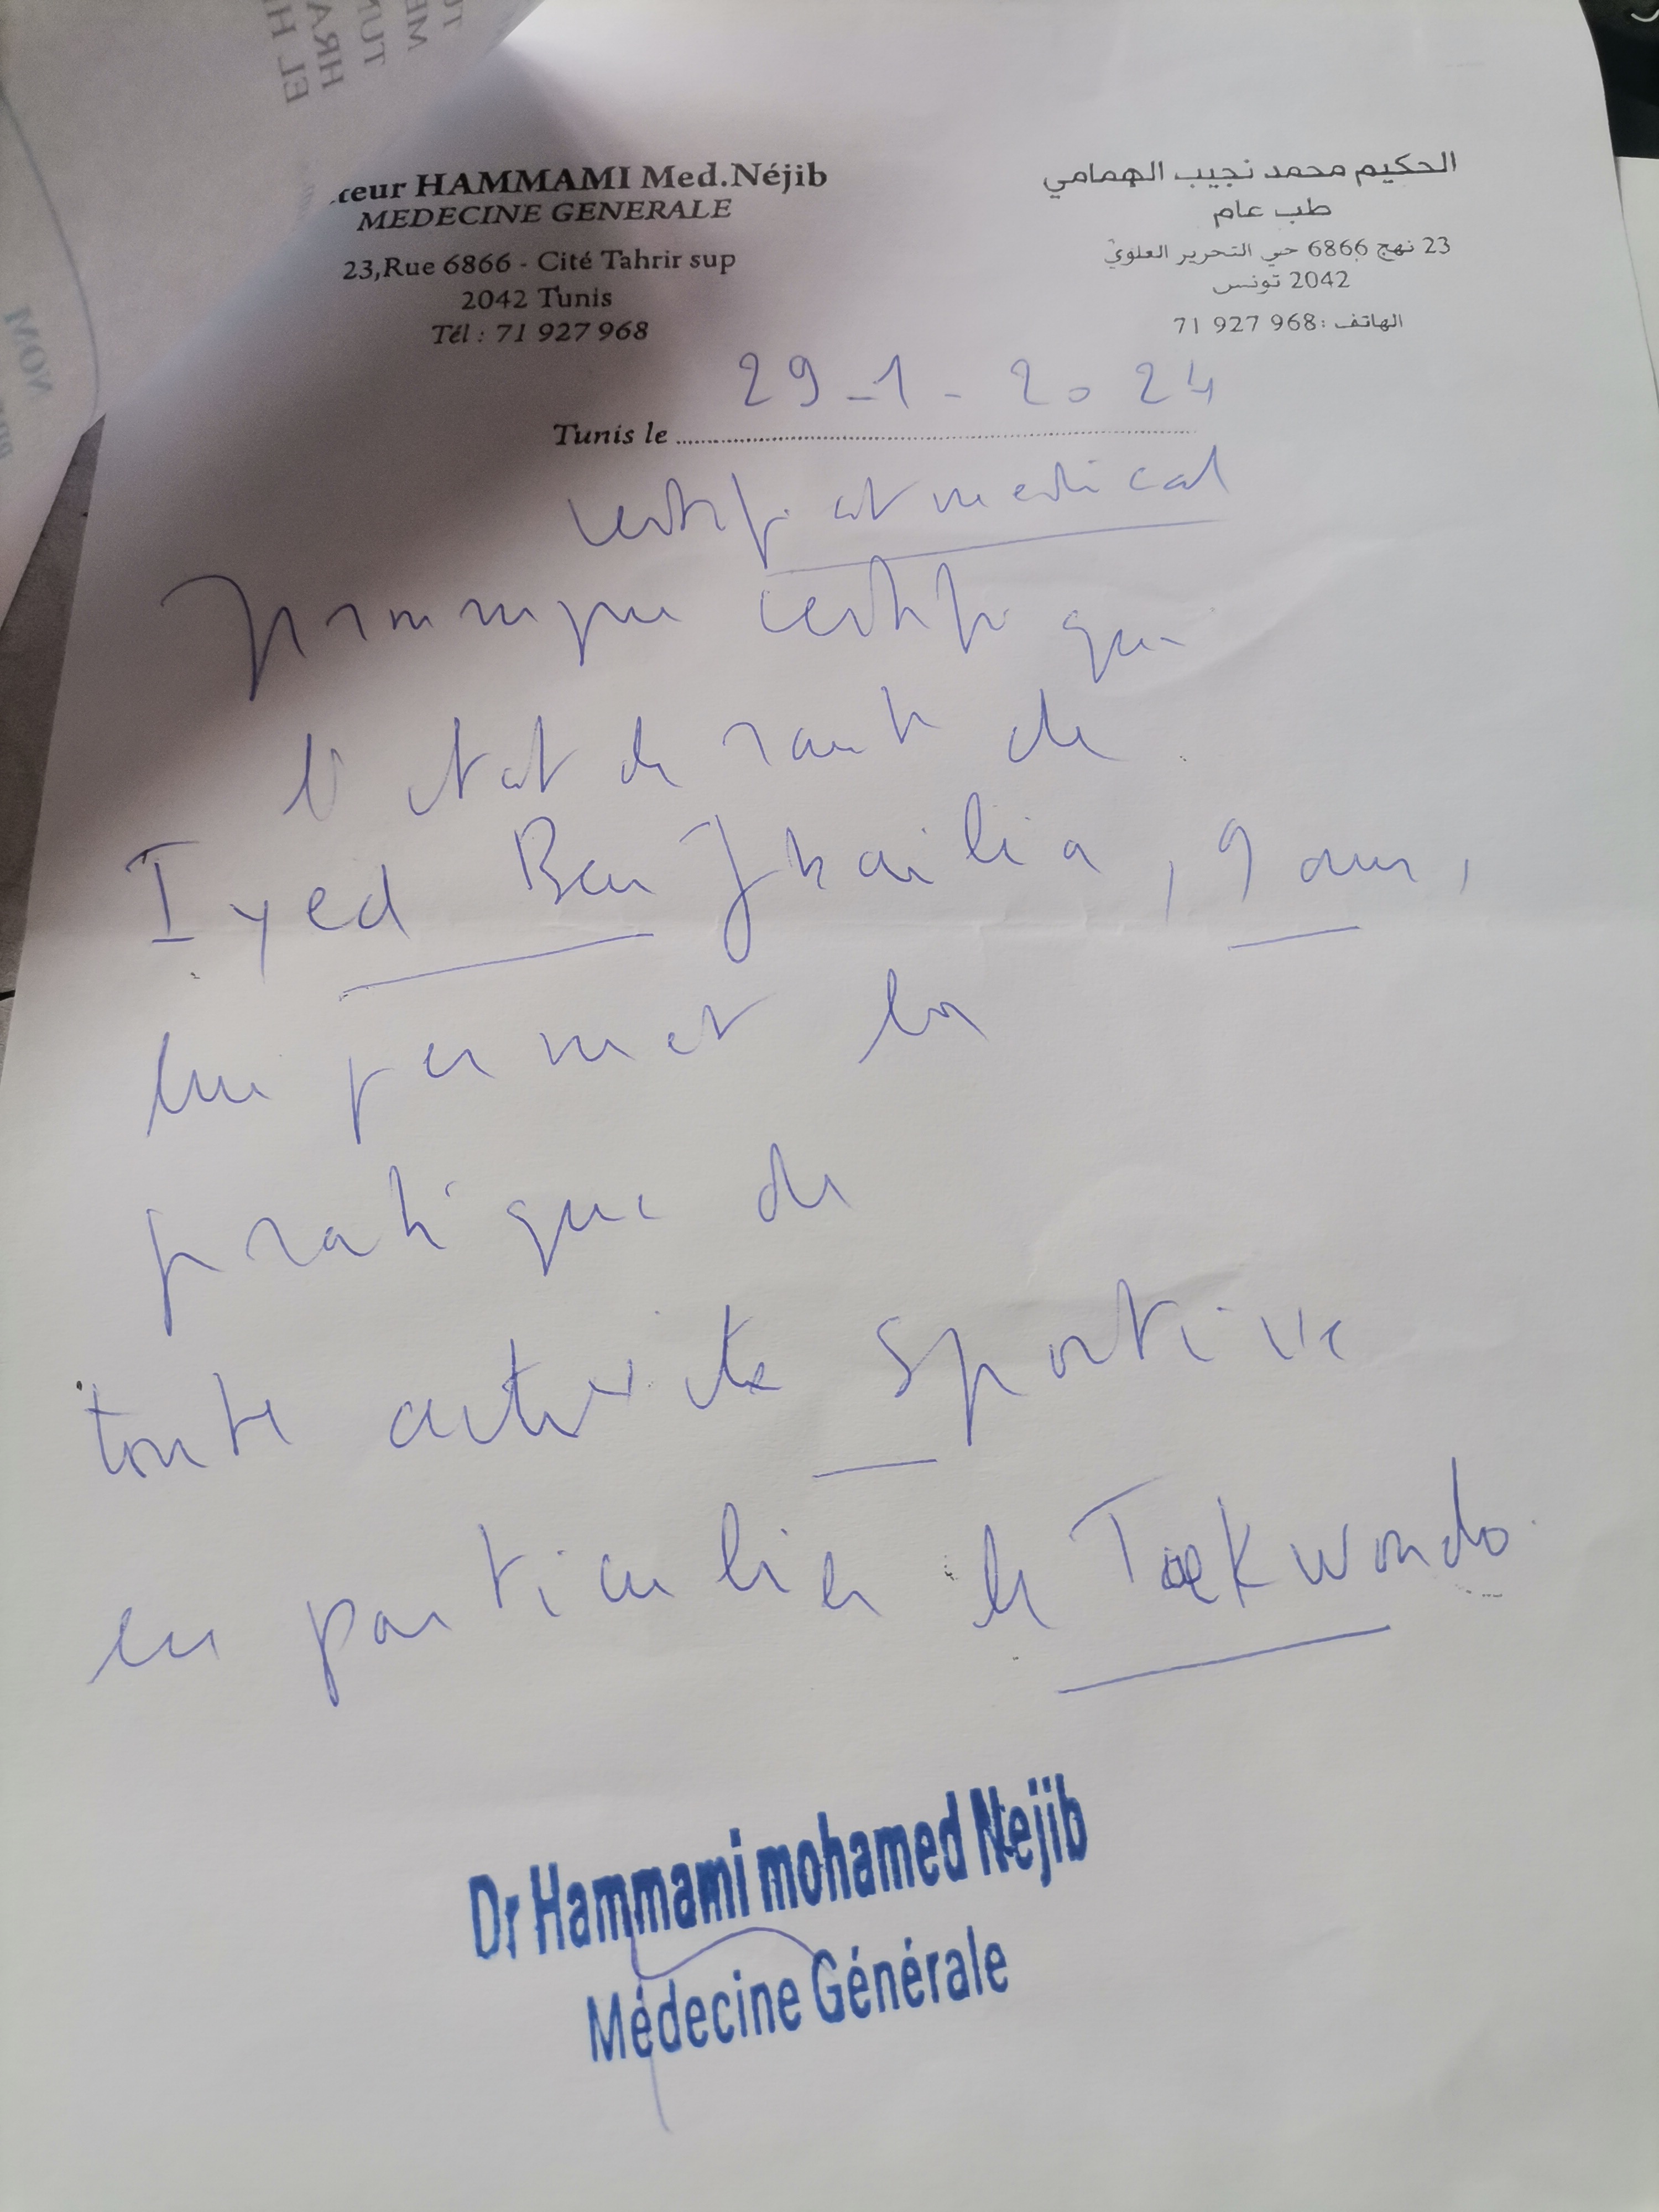 teur HAMMAMI Med.Néjib
MEDECINE GENERALE
23,Rue 6866 - Cité Tahrir sup
2042 Tunis
Tél : 71 927 968
الحكيم محمد نجيب الهمامي
طب عام
23 نهج 6866 حي التحرير العلوي
2042 تونس
الهاتف: 71 927 968
29-1-2024
Tunis le
certificat medical
certifie que
l'etat de sante de
Iyed Ben, 9 ans,
lui permet la
pratique de
toute activite sportive
en particulier le Taekwondo.
Dr Hammami mohamed Nejib
Médecine Générale
NOM